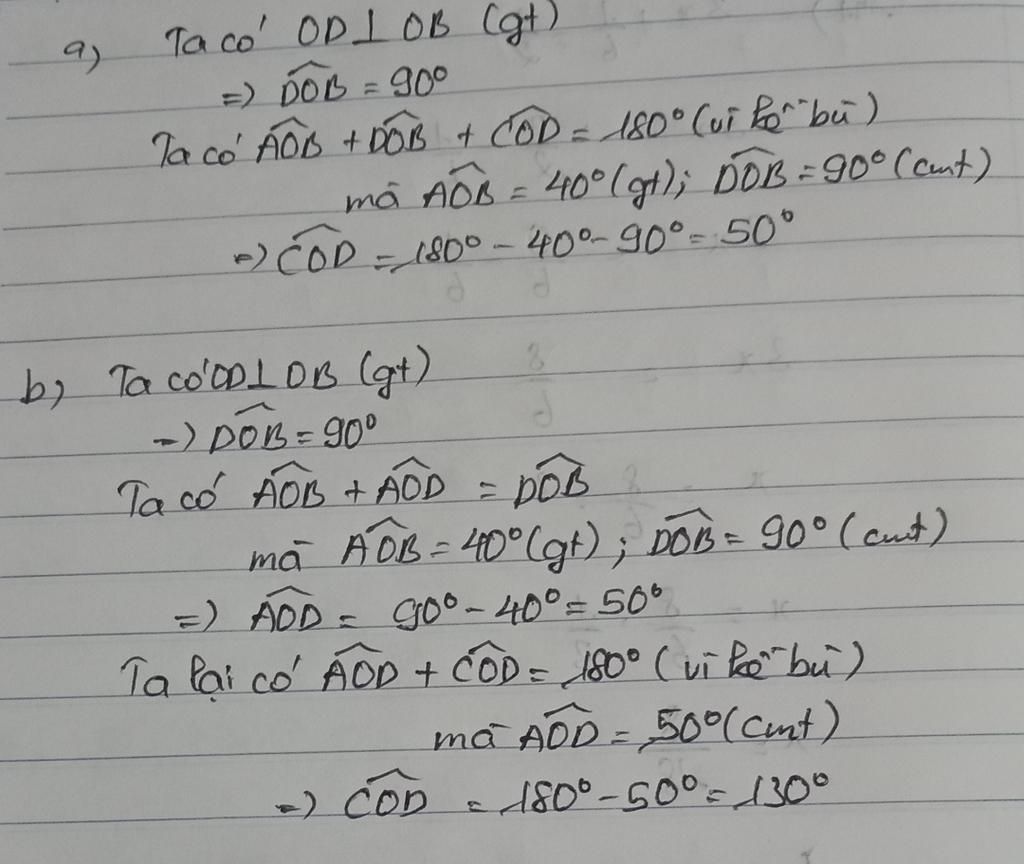 a, Ta có OD⊥OB (gt)
=> D̂OB = 90°
Ta có ÂOB + D̂OB + ĈOD = 180° (vì kề bù)
mà ÂOB = 40° (gt); D̂OB = 90° (cmt)
=> ĈOD = 180° - 40° - 90° = 50°
b, Ta có OD⊥OB (gt)
=> D̂OB = 90°
Ta có ÂOB + ÂOD = D̂OB
mà ÂOB = 40° (gt); D̂OB = 90° (cmt)
=> ÂOD = 90° - 40° = 50°
Ta lại có ÂOD + ĈOD = 180° (vì kề bù)
mà ÂOD = 50° (cmt)
=> ĈOD = 180° - 50° = 130°